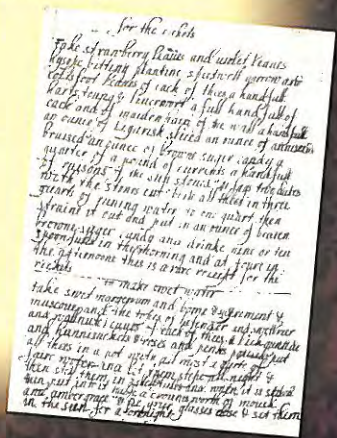 for the rickets
Take strawberry leaves and violet leaves
hysope plantine speedwell yarrow
coltsfoot leaves of each of these a handfull
harts toung & liverwort a full handfull of
each and of maiden haire of the wall a handfull
an ounce of Liqarish sliced an ounce of anniseeds
bruised an ounce of brown suger candy a
quarter of a pound of currents a handfull
of reisons of the sun stoned
with the stones out boile all these in three
quarts of runing water to one quart then
straine it out and put in an ounce of
suger candy and drinke nine or ten
spoonfuls in the morning and at foure in
the afternoone this is a rare receipt for the
rickets
to make swet water
take swet margerum and time & 
and the tops of lavender and
and leaves of each of these a like quantie
and hunnisuckels & roses and pinks put
all thes in a pot with all most 2 quts of
faire water and let them stepe all night &
then still them in and when it is
put into it halfe a crowns worth of muske
and ambergrece & put glasses close & set them
in the sun for a fortnight